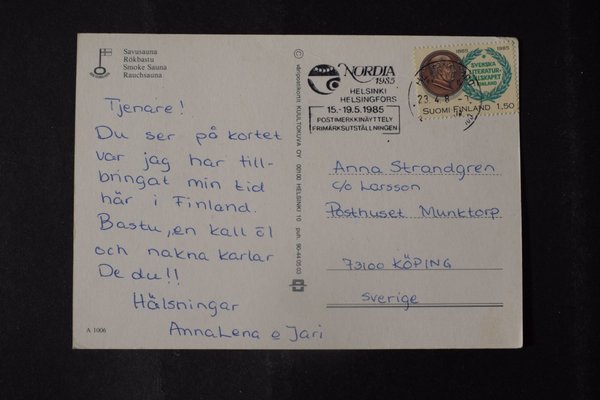 Savusauna
Rökbastu
Smoke Sauna
Rauchsauna
Tjenare!
Du ser på kortet
var jag har till-
bringat min tid
här i Finland.
Bastu, en kall öl
och nakna karlar
De du!!
Hälsningar
AnnaLena o Jari
A 1006
© väripostikortit KUULTOKUVA OY 00100 HELSINKI 10 puh. 90-44 05 03
NORDIA
1985
HELSINKI
HELSINGFORS
15.-19.5.1985
POSTIMERKKINÄYTTELY
FRIMÄRKSUTSTÄLLNINGEN
23.4.8
1885 1985
SVENSKA
LITTERATUR-
SÄLLSKAPET
I FINLAND
SUOMI FINLAND 1,50
Anna Strandgren
c/o Larsson
Posthuset Munktorp
73100 KÖPING
Sverige